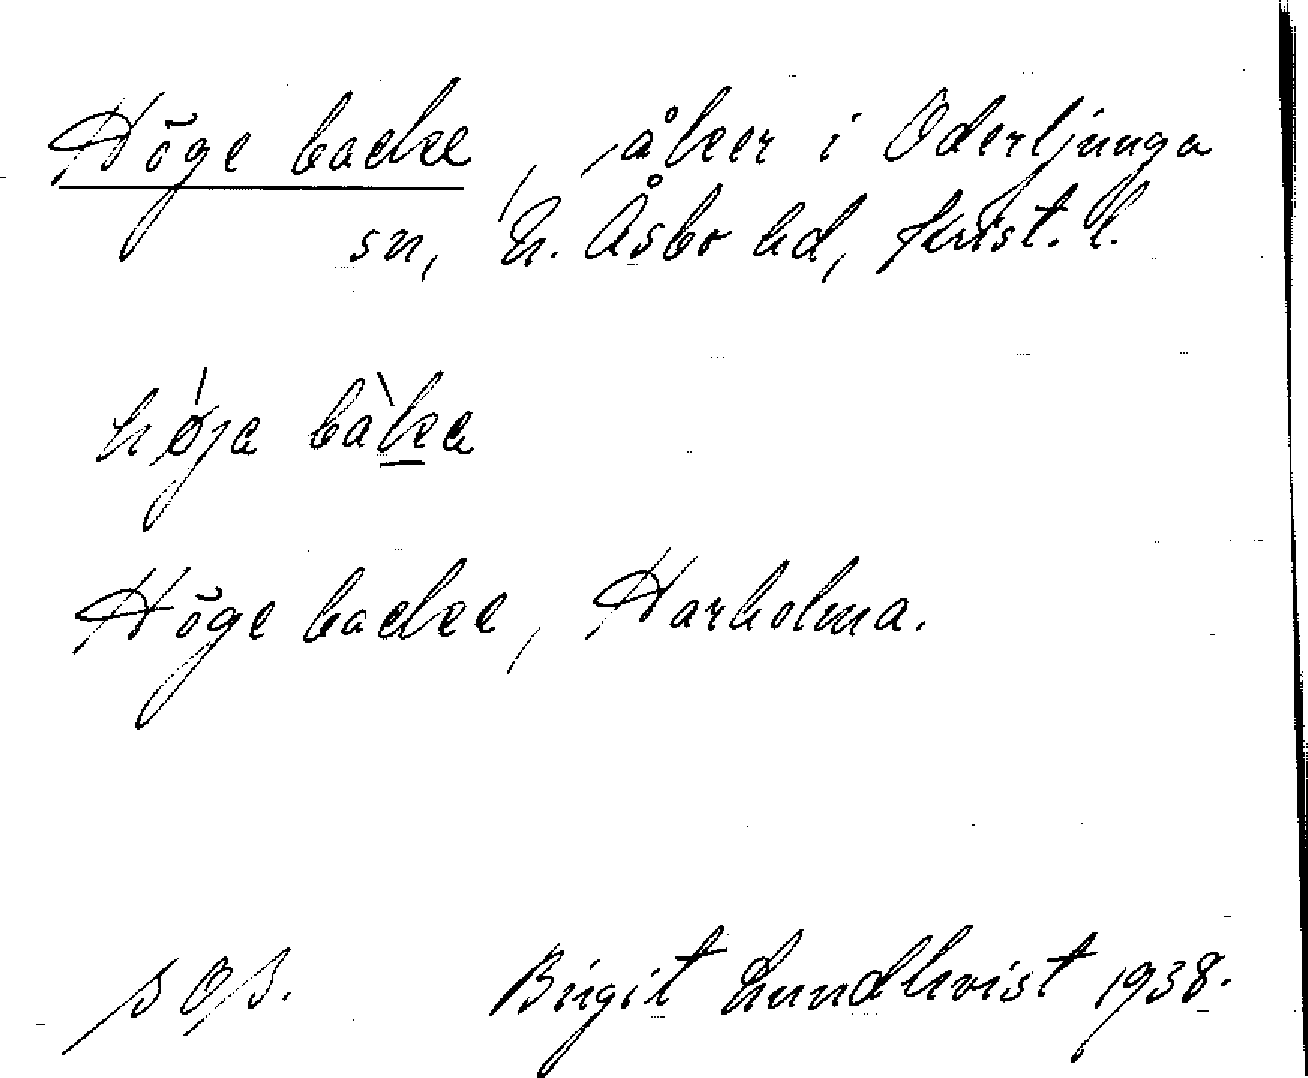 Höge backe, åker i Oderljunga
sn, N. Åsbo hd, Krist. l.
høja bàka
Höge backe, Harholma.
Birgit Lundkvist 1938.